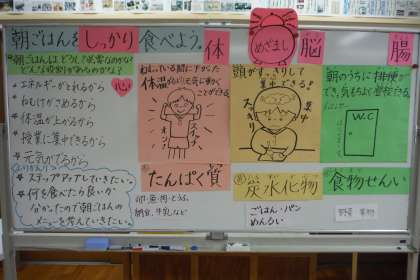 朝ごはんをしっかり食べよう。
体 めざまし 脳 腸
朝ごはんは、どうして必要なのかな?
どんな役割があるのかな?
・エネルギーがとれるから
・ねむけがさめるから
・体温が上がるから
・授業に集中できるから
・元気がでるから
心
・ステップアップしていきたい。
・何を食べたら良いか
分かったので朝ごはんの
メニューを考えていきたい。
ねている間に下がった
体温が上がり元気に動く
ことができる
スイッチオン!
たんぱく質
卵・魚・肉・とうふ
納豆、牛乳など
頭がすっきりして
集中できる!
スッキリ
集中!
炭水化物
ごはん・パン
めんるい
朝のうちに排便が
でき、気もちよく登校できる
W.C
食物せんい
野菜 果物